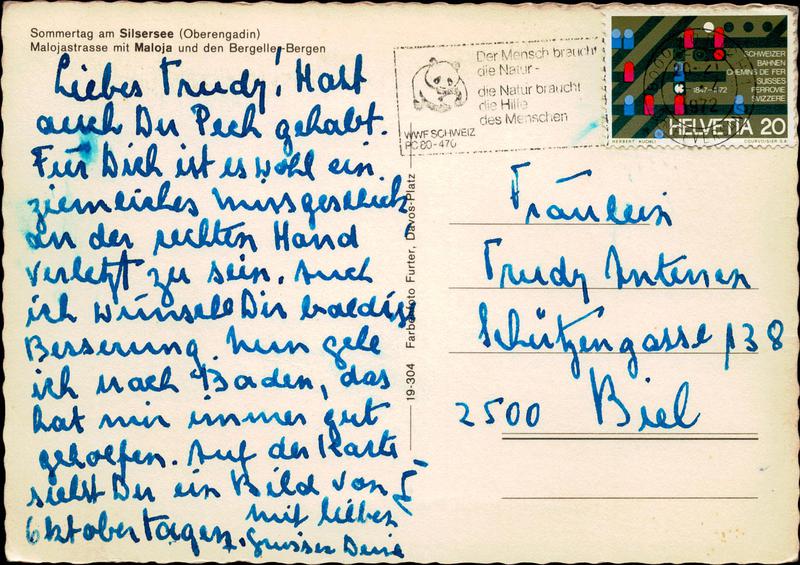 Sommertag am Silsersee (Oberengadin)
Malojastrasse mit Maloja und den Bergeller-Bergen
Liebes Trudy! Hast
auch Du Pech gehabt.
Für Dich ist es wohl ein
ziemliches Missgeschick
an der rechten Hand
verletzt zu sein. Auch
ich wünsche Dir baldige
Besserung. Nun gehe
ich nach Baden, das
hat mir immer gut
geholfen. Auf der Karte
siehst Du ein Bild von
Oktobertagen. Mit lieben
Grüssen Deine
19-304 Farbenfoto Furter, Davos-Platz
WWF SCHWEIZ
PC 80-470
Der Mensch braucht
die Natur -
die Natur braucht
die Hilfe
des Menschen
SCHWEIZER
BAHNEN
CHEMINS DE FER
SUISSES
FERROVIE
SVIZZERE
1847-1972
1972
HELVETIA 20
HERBERT KUCHLI COURVOISIER S.A.
Fräulein
Trudy
Schützengasse 138
2500 Biel